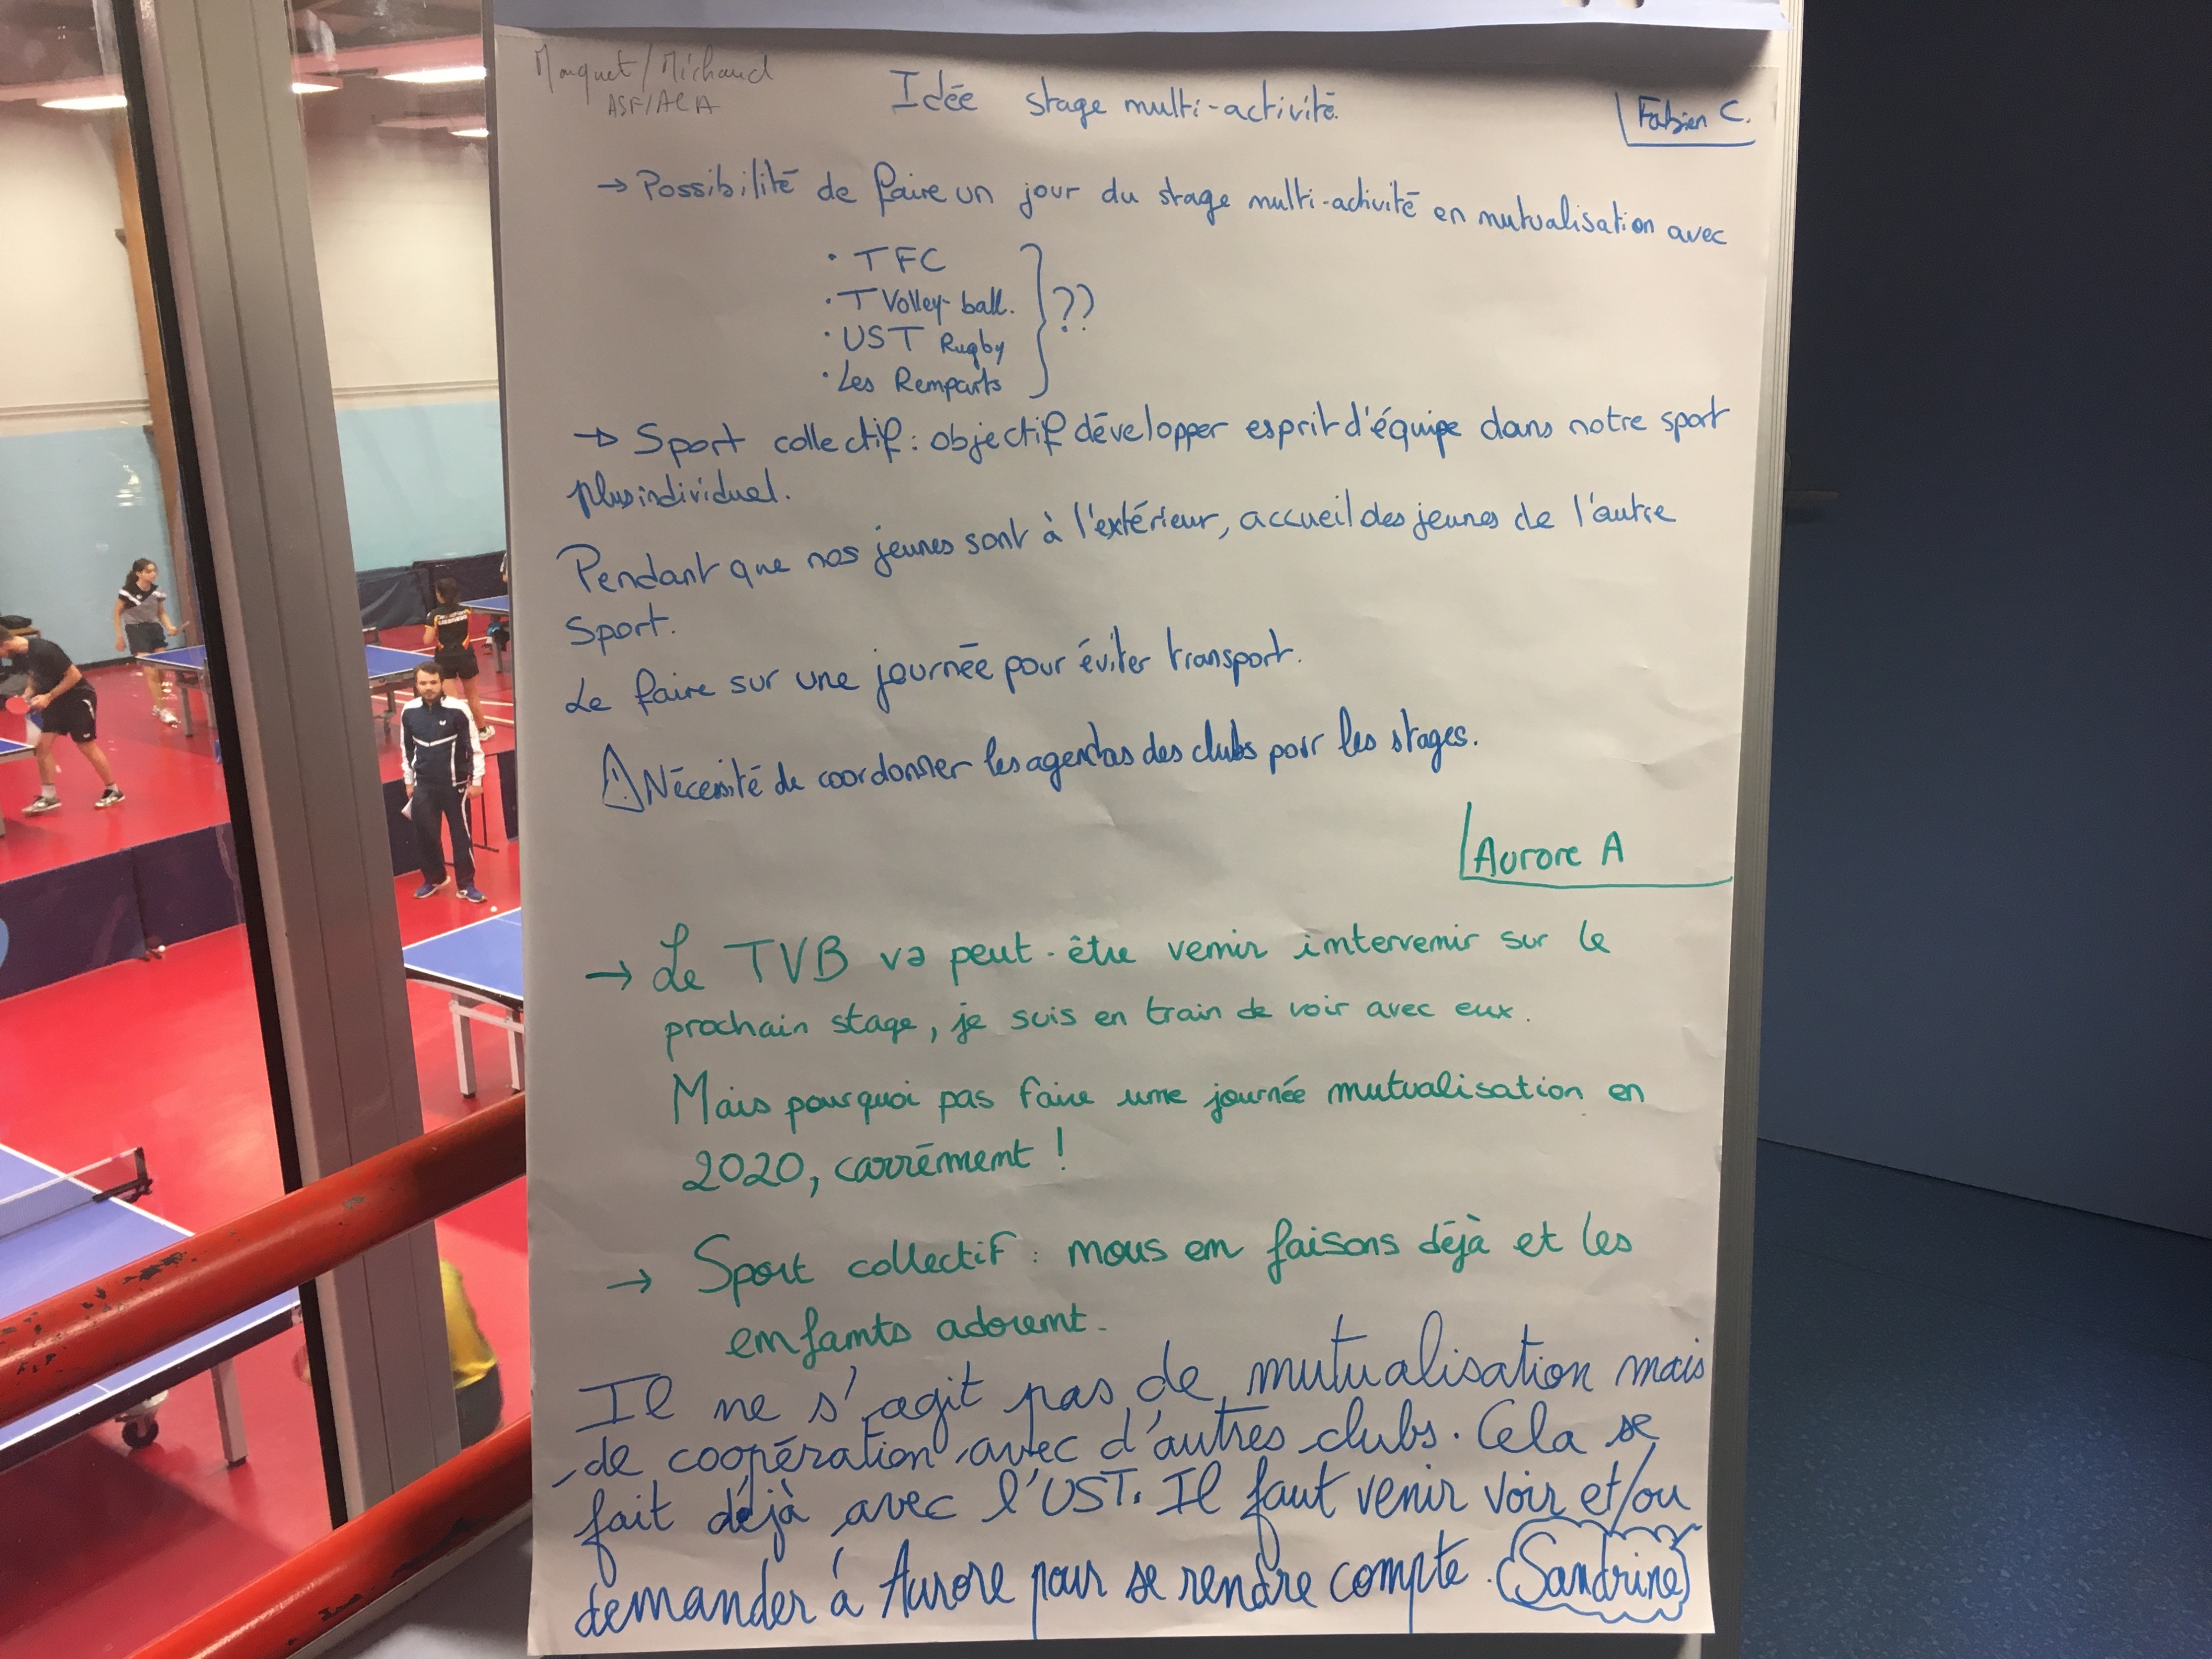 Mouquet/Michaud
ASF/ACA
Idée stage multi-activité.
Fabien C.
→ Possibilité de faire un jour du stage multi-activité en mutualisation avec
• TFC
• T Volley-ball.
• UST Rugby
• Les Remparts
??
→ Sport collectif : objectif développer esprit d'équipe dans notre sport
plus individuel.
Pendant que nos jeunes sont à l'extérieur, accueil des jeunes de l'autre
sport.
Le faire sur une journée pour éviter transport.
! Nécessité de coordonner les agendas des clubs pour les stages.
Aurore A
→ Le TVB va peut-être venir intervenir sur le
prochain stage, je suis en train de voir avec eux.
Mais pourquoi pas faire une journée mutualisation en
2020, carrément !
→ Sport collectif : nous en faisons déjà et les
enfants adorent.
Il ne s'agit pas de mutualisation mais
de coopération avec d'autres clubs. Cela se
fait déjà avec l'UST. Il faut venir voir et/ou
demander à Aurore pour se rendre compte. Sandrine